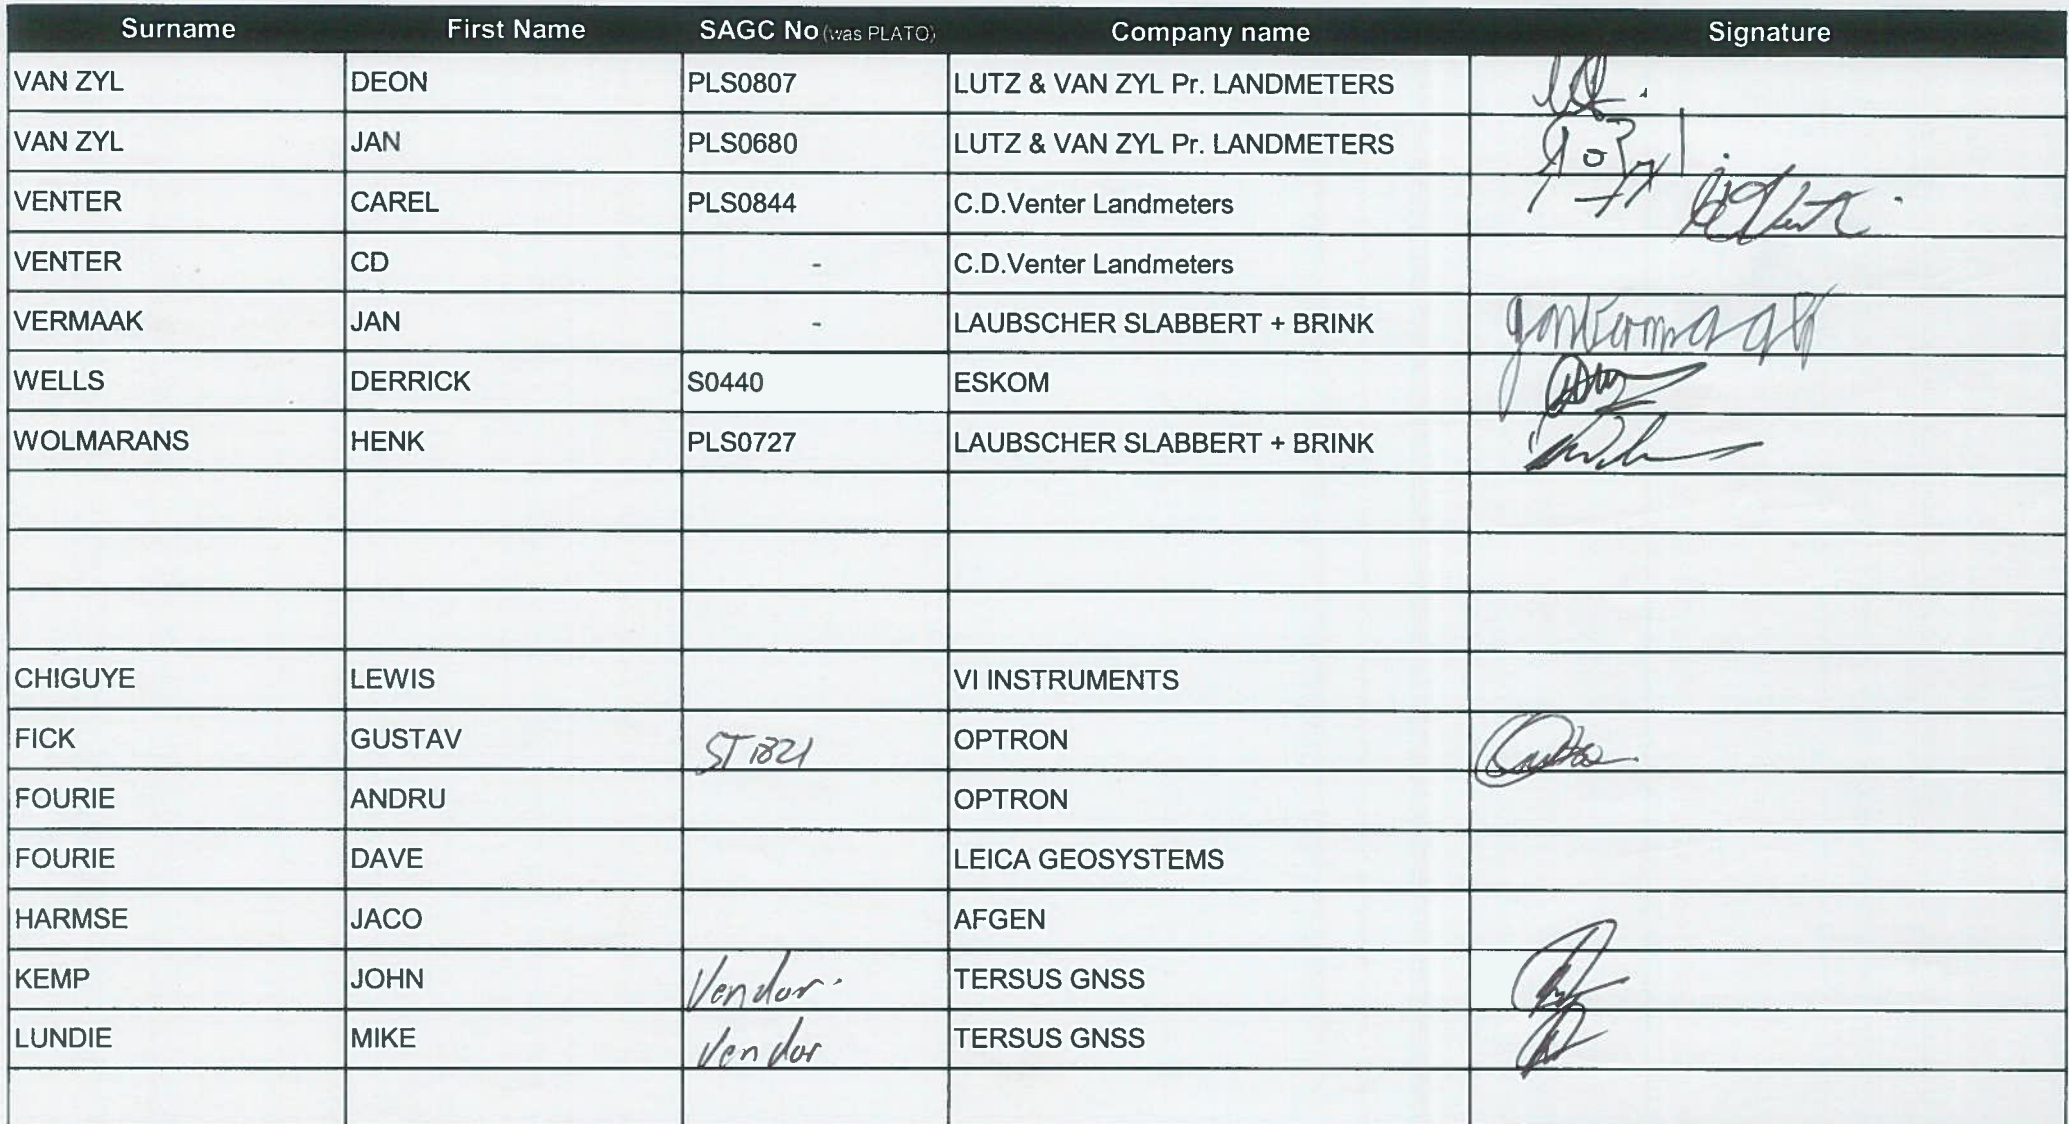 Surname First Name SAGC No (was PLATO) Company name Signature
VAN ZYL DEON PLS0807 LUTZ & VAN ZYL Pr. LANDMETERS
VAN ZYL JAN PLS0680 LUTZ & VAN ZYL Pr. LANDMETERS
VENTER CAREL PLS0844 C.D.Venter Landmeters
VENTER CD - C.D.Venter Landmeters
VERMAAK JAN - LAUBSCHER SLABBERT + BRINK
WELLS DERRICK S0440 ESKOM
WOLMARANS HENK PLS0727 LAUBSCHER SLABBERT + BRINK
CHIGUYE LEWIS VI INSTRUMENTS
FICK GUSTAV ST1821 OPTRON
FOURIE ANDRU OPTRON
FOURIE DAVE LEICA GEOSYSTEMS
HARMSE JACO AFGEN
KEMP JOHN Vendor. TERSUS GNSS
LUNDIE MIKE Vendor TERSUS GNSS